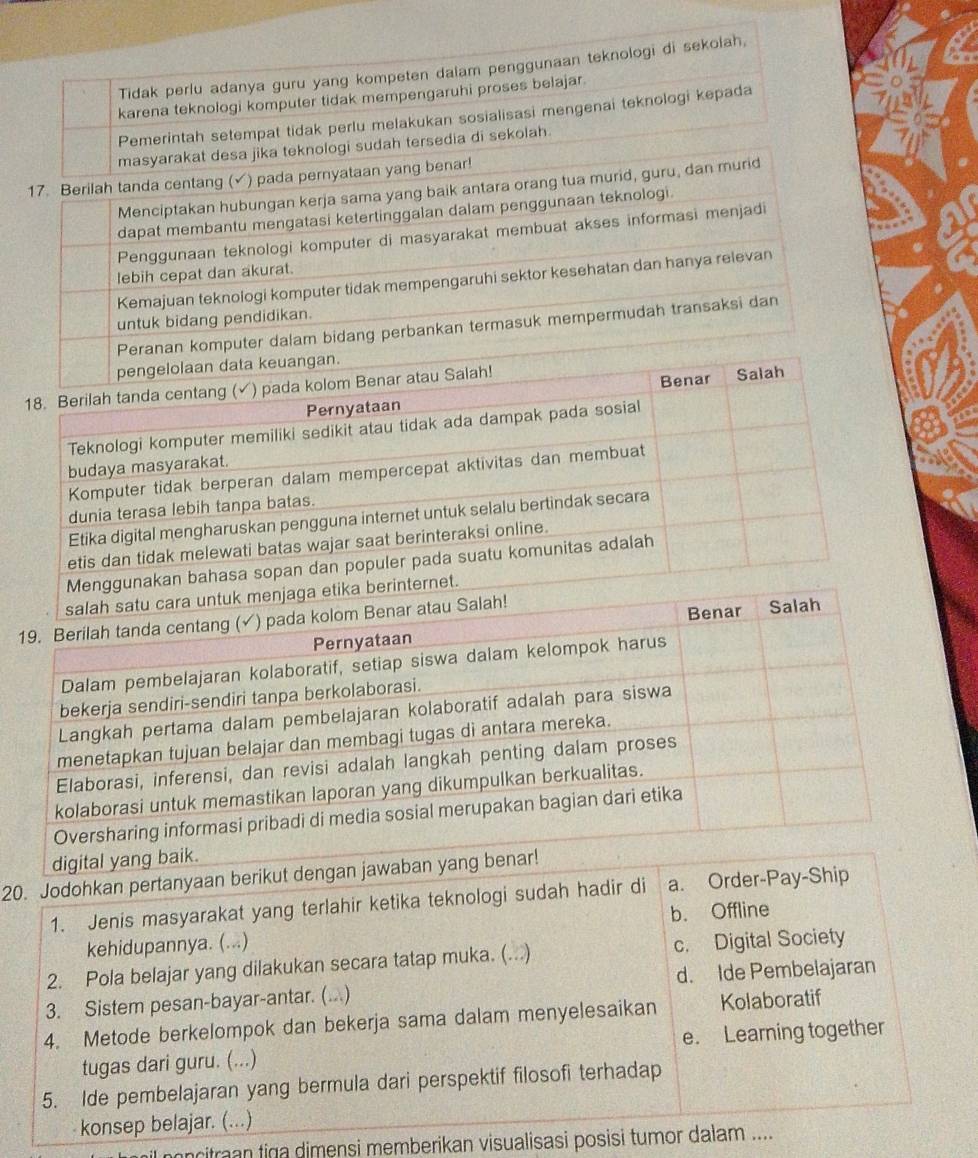 Tidak perlu adanya guru yang kompeten dalam penggunaan teknologi di sekolah,
karena teknologi komputer tidak mempengaruhi proses belajar.
Pemerintah setempat tidak perlu melakukan sosialisasi mengenai teknologi kepada
masyarakat desa jika teknologi sudah tersedia di sekolah.
17. Berilah tanda centang (✓) pada pernyataan yang benar!
Menciptakan hubungan kerja sama yang baik antara orang tua murid, guru, dan murid
dapat membantu mengatasi ketertinggalan dalam penggunaan teknologi.
Penggunaan teknologi komputer di masyarakat membuat akses informasi menjadi
lebih cepat dan akurat.
Kemajuan teknologi komputer tidak mempengaruhi sektor kesehatan dan hanya relevan
untuk bidang pendidikan.
Peranan komputer dalam bidang perbankan termasuk mempermudah transaksi dan
pengelolaan data keuangan.
18. Berilah tanda centang (✓) pada kolom Benar atau Salah!
Pernyataan Benar Salah
Teknologi komputer memiliki sedikit atau tidak ada dampak pada sosial
budaya masyarakat.
Komputer tidak berperan dalam mempercepat aktivitas dan membuat
dunia terasa lebih tanpa batas.
Etika digital mengharuskan pengguna internet untuk selalu bertindak secara
etis dan tidak melewati batas wajar saat berinteraksi online.
Menggunakan bahasa sopan dan populer pada suatu komunitas adalah
salah satu cara untuk menjaga etika berinternet.
19. Berilah tanda centang (✓) pada kolom Benar atau Salah!
Pernyataan Benar Salah
Dalam pembelajaran kolaboratif, setiap siswa dalam kelompok harus
bekerja sendiri-sendiri tanpa berkolaborasi.
Langkah pertama dalam pembelajaran kolaboratif adalah para siswa
menetapkan tujuan belajar dan membagi tugas di antara mereka.
Elaborasi, inferensi, dan revisi adalah langkah penting dalam proses
kolaborasi untuk memastikan laporan yang dikumpulkan berkualitas.
Oversharing informasi pribadi di media sosial merupakan bagian dari etika
digital yang baik.
20. Jodohkan pertanyaan berikut dengan jawaban yang benar!
1. Jenis masyarakat yang terlahir ketika teknologi sudah hadir di
kehidupannya. (...)
2. Pola belajar yang dilakukan secara tatap muka. (...)
3. Sistem pesan-bayar-antar. (...)
4. Metode berkelompok dan bekerja sama dalam menyelesaikan
tugas dari guru. (...)
5. Ide pembelajaran yang bermula dari perspektif filosofi terhadap
konsep belajar. (...)
a. Order-Pay-Ship
b. Offline
c. Digital Society
d. Ide Pembelajaran
Kolaboratif
e. Learning together
tiga dimensi memberikan visualisasi posisi tumor dalam ....